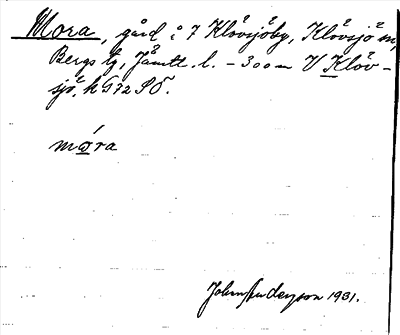 Mora, gård i 7 Klövsjöby, Klövsjö sn,
Bergs tg, Jämtl. l. – 300 m V Klöv-
sjö, k G72 SO.
mώra
John Anderzon 1931.